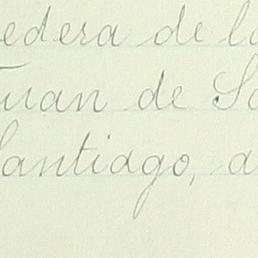 edera de la
Juan de Sa
Santiago, a